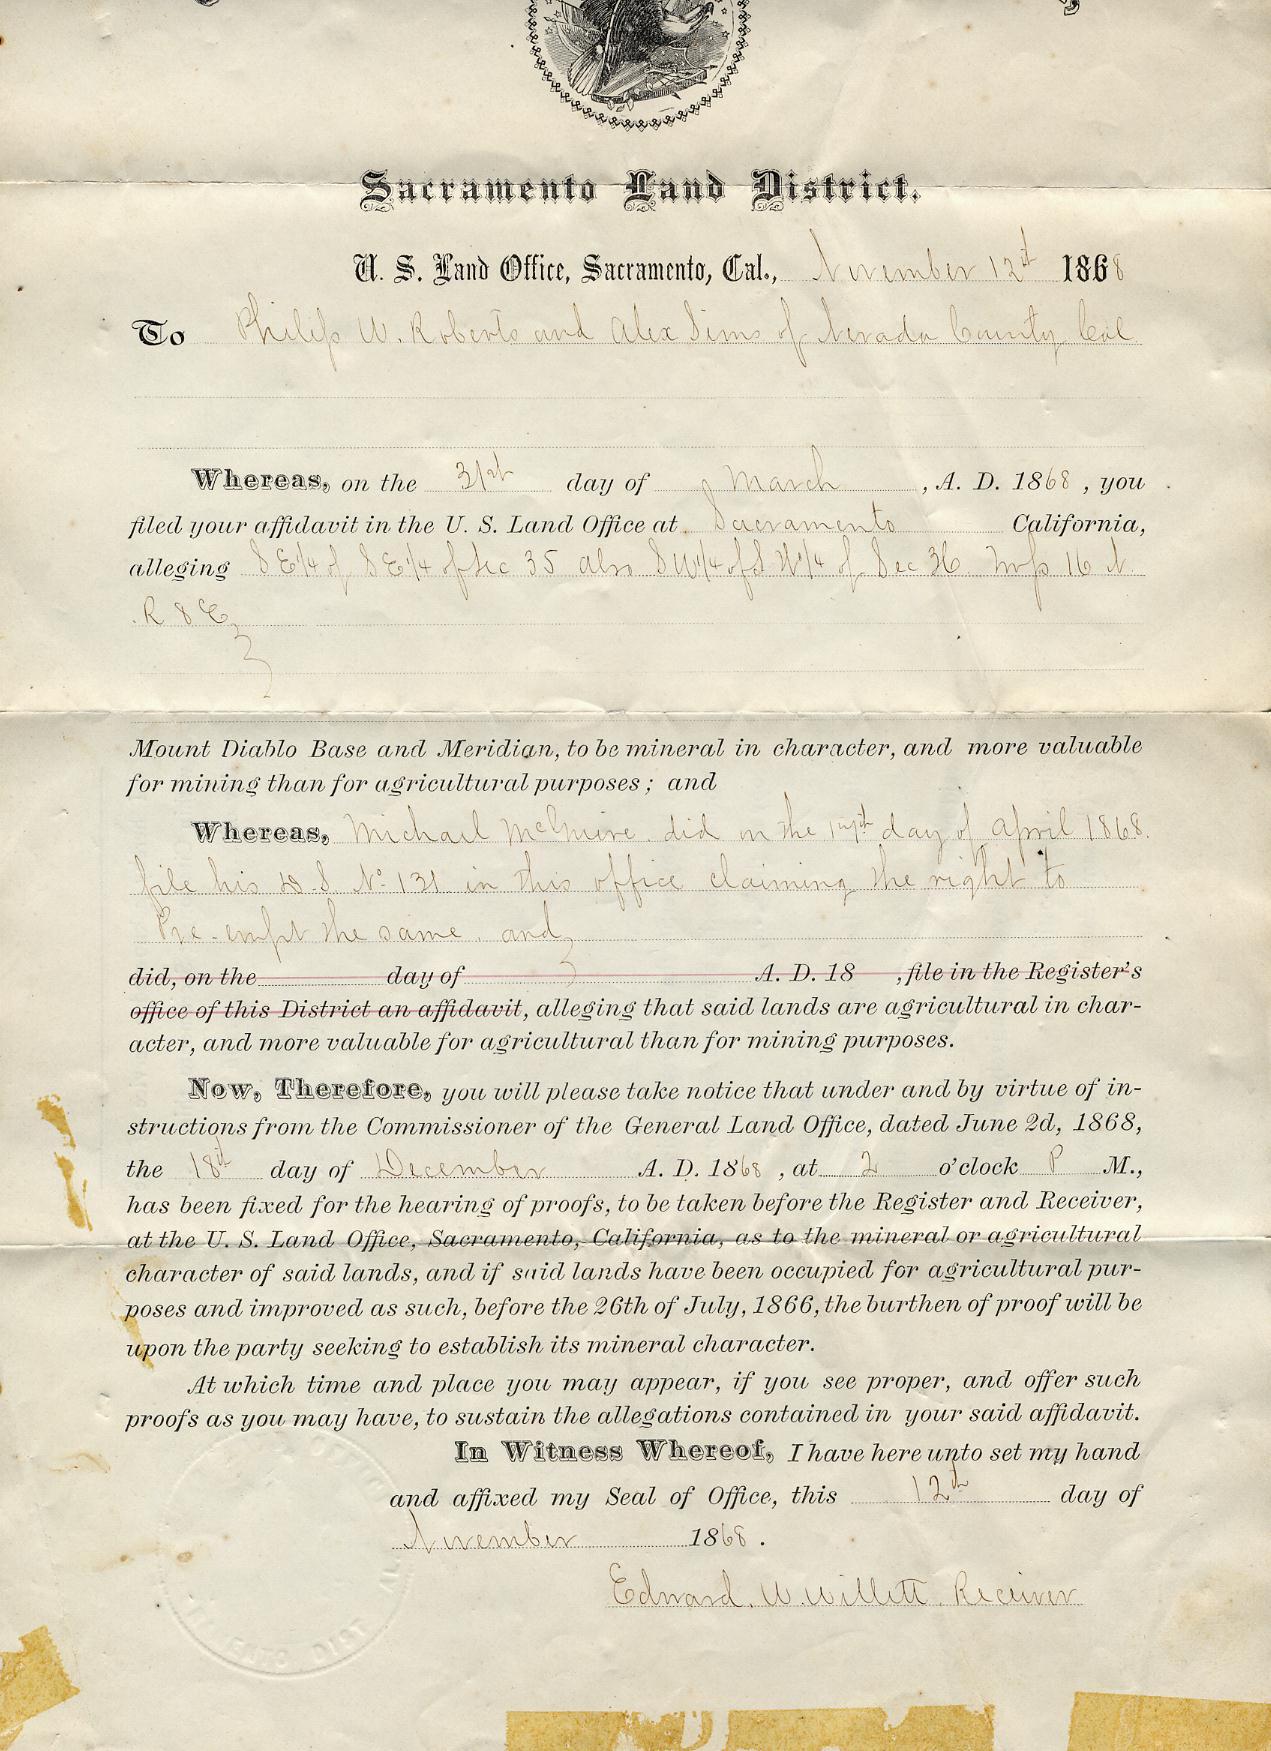 Sacramento Land District.
U. S. Land Office, Sacramento, Cal., November 12th 1868
To Philip W. Roberts and Alex Sims of Nevada County Cal
Whereas, on the 31st day of March , A. D. 1868 , you
filed your affidavit in the U. S. Land Office at Sacramento California,
alleging S E 1/4 of S E 1/4 of Sec 35 also S W 1/4 of S W 1/4 of Sec 36 Twp 16 N.
R 8 E
Mount Diablo Base and Meridian, to be mineral in character, and more valuable
for mining than for agricultural purposes; and
Whereas, Michael McGuire did on the day of April 1868
file his D. S. No 131 in this office claiming the right to
Pre-empt the same and
did, on the day of A. D. 18 , file in the Register's
office of this District an affidavit, alleging that said lands are agricultural in char-
acter, and more valuable for agricultural than for mining purposes.
Now, Therefore, you will please take notice that under and by virtue of in-
structions from the Commissioner of the General Land Office, dated June 2d, 1868,
the 18th day of December A. D. 1868 , at 2 o'clock P M.,
has been fixed for the hearing of proofs, to be taken before the Register and Receiver,
at the U. S. Land Office, Sacramento, California, as to the mineral or agricultural
character of said lands, and if said lands have been occupied for agricultural pur-
poses and improved as such, before the 26th of July, 1866, the burthen of proof will be
upon the party seeking to establish its mineral character.
At which time and place you may appear, if you see proper, and offer such
proofs as you may have, to sustain the allegations contained in your said affidavit.
In Witness Whereof, I have here unto set my hand
and affixed my Seal of Office, this 12th day of
November 1868 .
Edward W. Willett Receiver